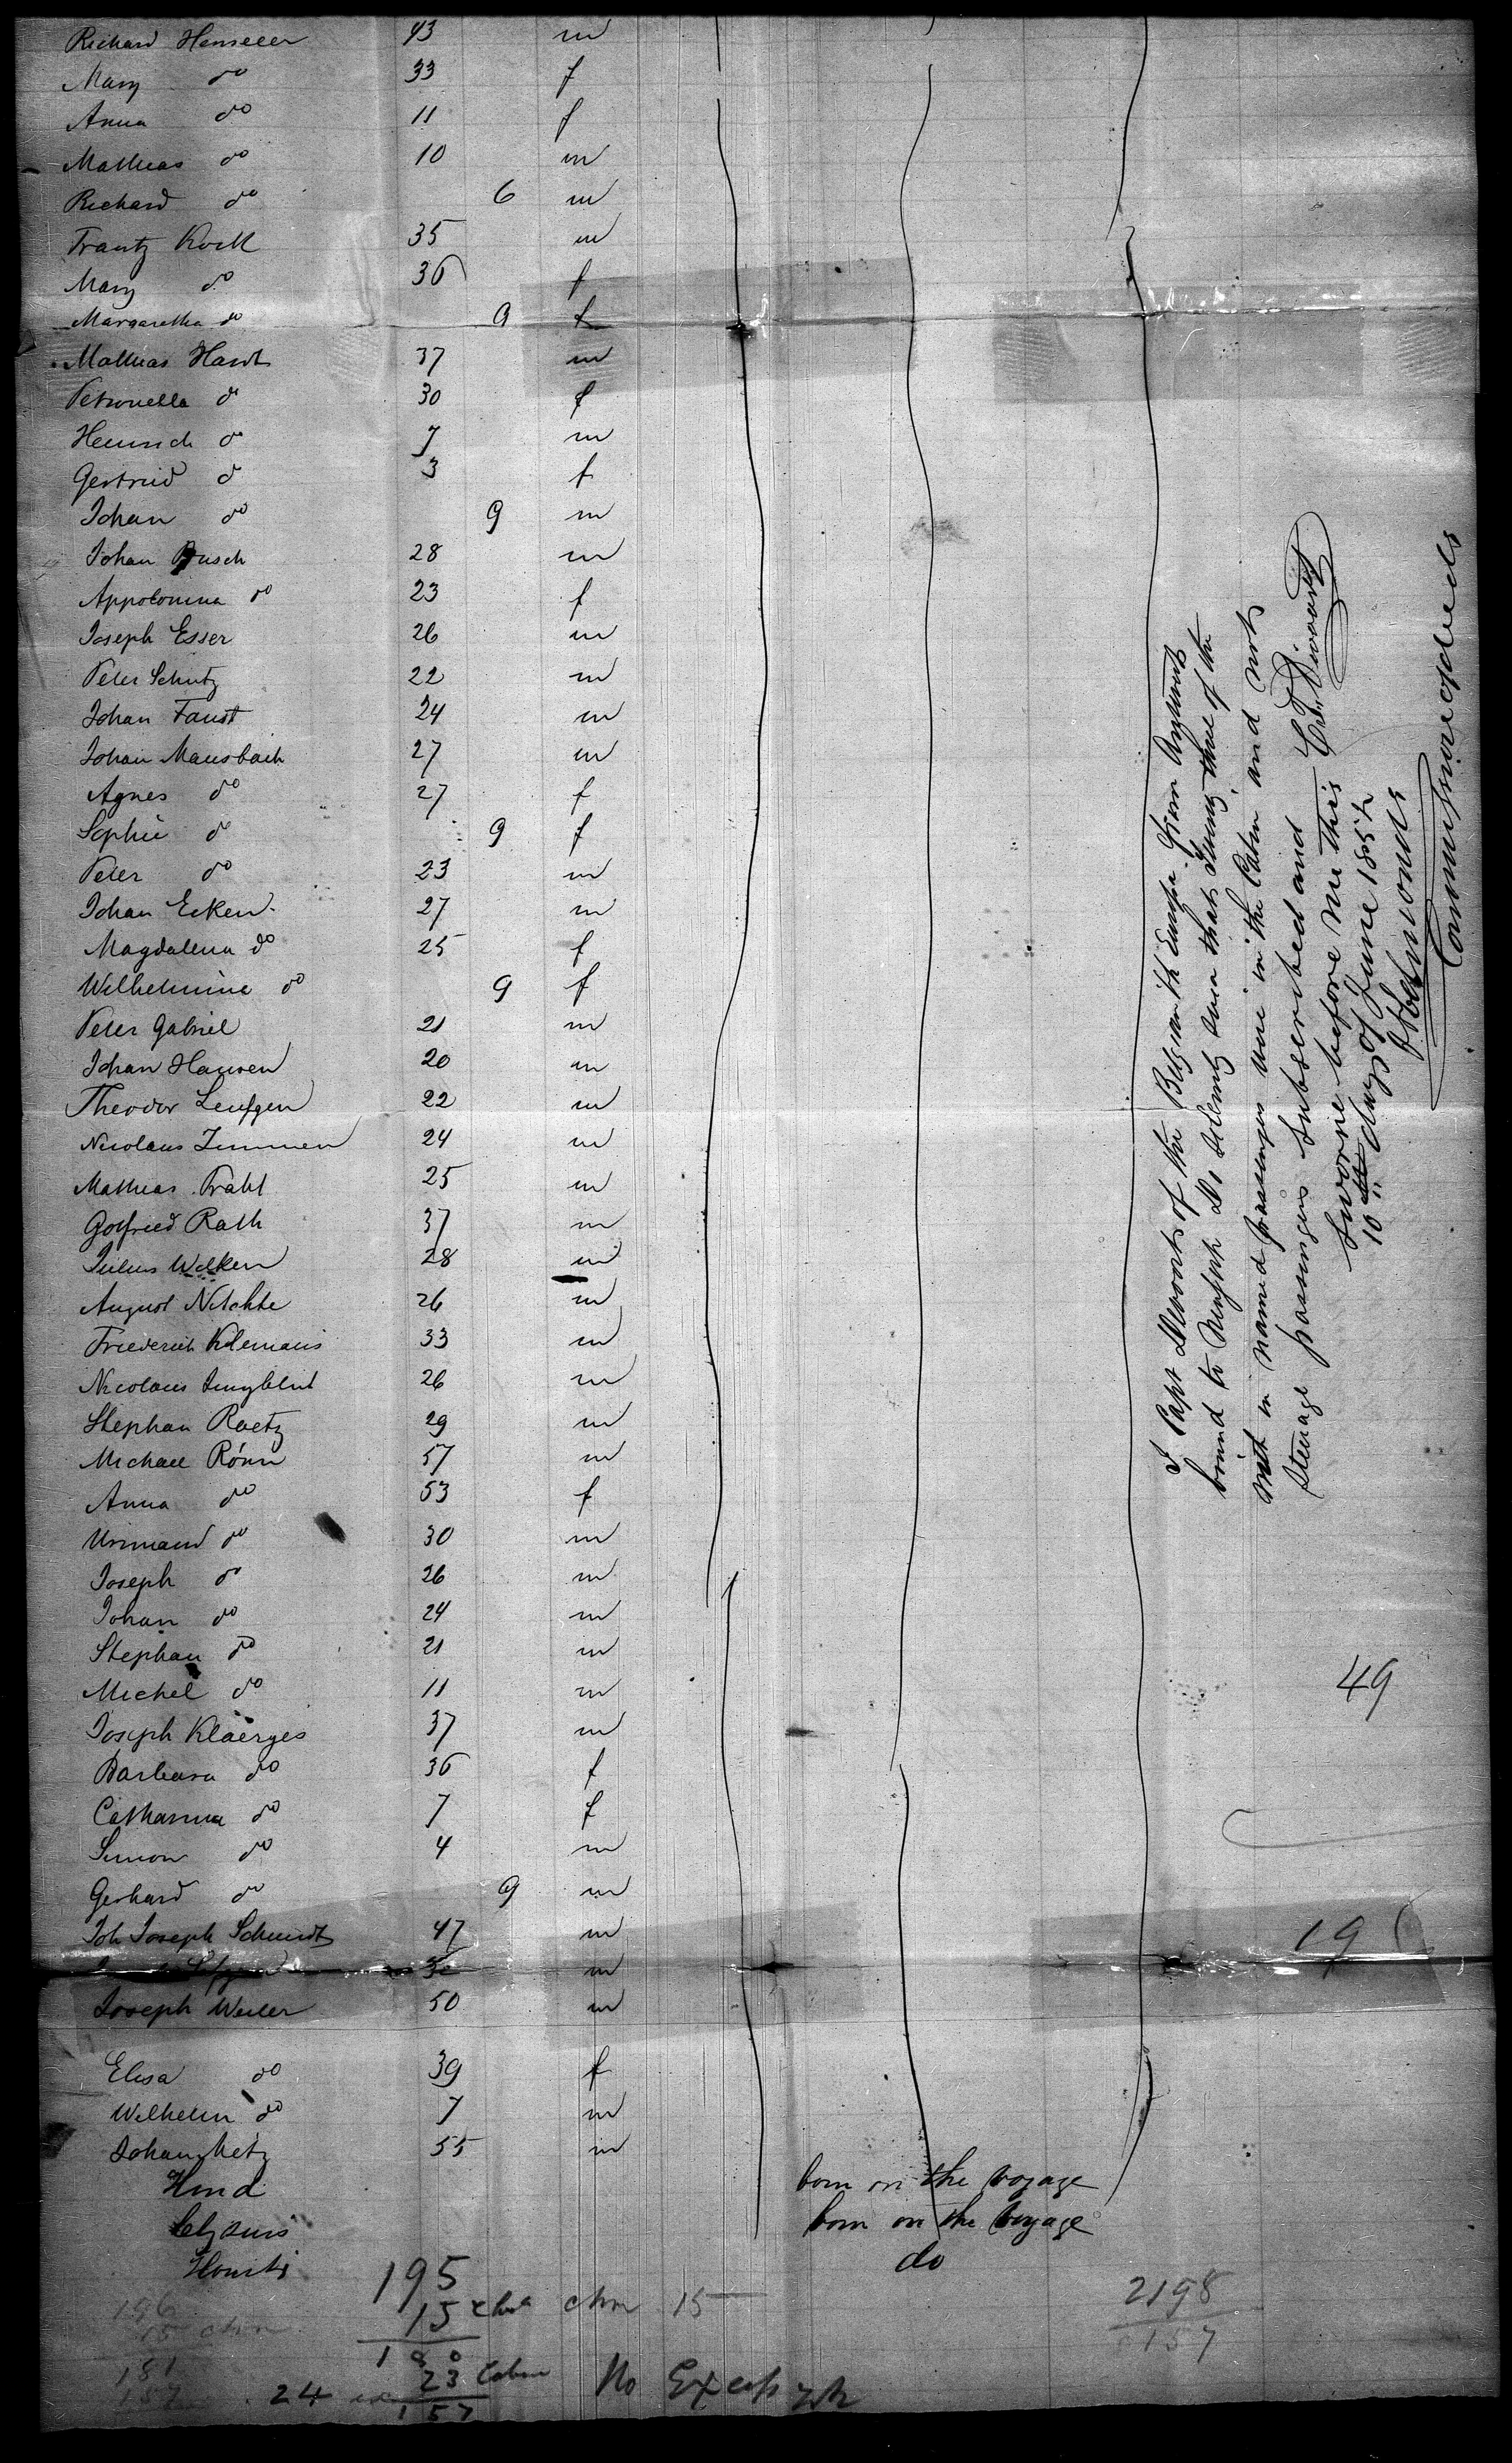 Richard Henseler 43 m
Mary do 33 f
Anna do 11 f
Mathias do 10 m
Richard do 6 m
Frantz Koll 35 m
Mary do 36 f
Margaretha do 9 f
Mathias Hardt 37 m
Petronella do 30 f
Heinrich do 7 m
Gertrud do 3 f
Johan do 9 m
Johan Busch 28 m
Appolonina do 23 f
Joseph Esser 26 m
Peter Schutz 22 m
Johan Faust 24 m
Johan Mausbach 27 m
Agnes do 27 f
Sophie do 9 f
Peter do 23 m
Johan Ecken 27 m
Magdalena do 25 f
Wilhelmine do 9 f
Peter Gabriel 21 m
Johan Hansen 20 m
Theodor Leufgen 22 m
Nicolaus Zimmen 24 m
Mathias Prahl 25 m
Gotfried Rath 37 m
Julius Welken 28 m
August Nitchke 26 m
Friederich Klemans 33 m
Nicolaus Jungblut 26 m
Stephan Raetz 29 m
Michael Rönn 57 m
Anna do 53 f
do 30 m
Joseph do 26 m
Johan do 24 m
Stephan do 21 m
Michel do 11 m
Joseph Klaerges 37 m
Barbara do 36 f
Catharina do 7 f
Simon do 4 m
Gerhard do 9 m
Joh Joseph Schmidt 47 m
m
Joseph Weiler 50 m
Elisa do 39 f
Wilhelm do 7 m
Johan Metz 55 m
born on the voyage
born on the voyage
do
195
15 chn 15
180
23 Cabin
157
24
No Excess
196
15 chn
181
157
2198
157
I Capt of the Belgian Sh Europa from Antwerp
bound to do solemnly swear that Twenty three of the
with in named passengers were in the Cabin and not
Steerage passengers Subscribed and
Sworne before me this
10th day of June 185
Edmonds
Commissioner of deeds
49
19